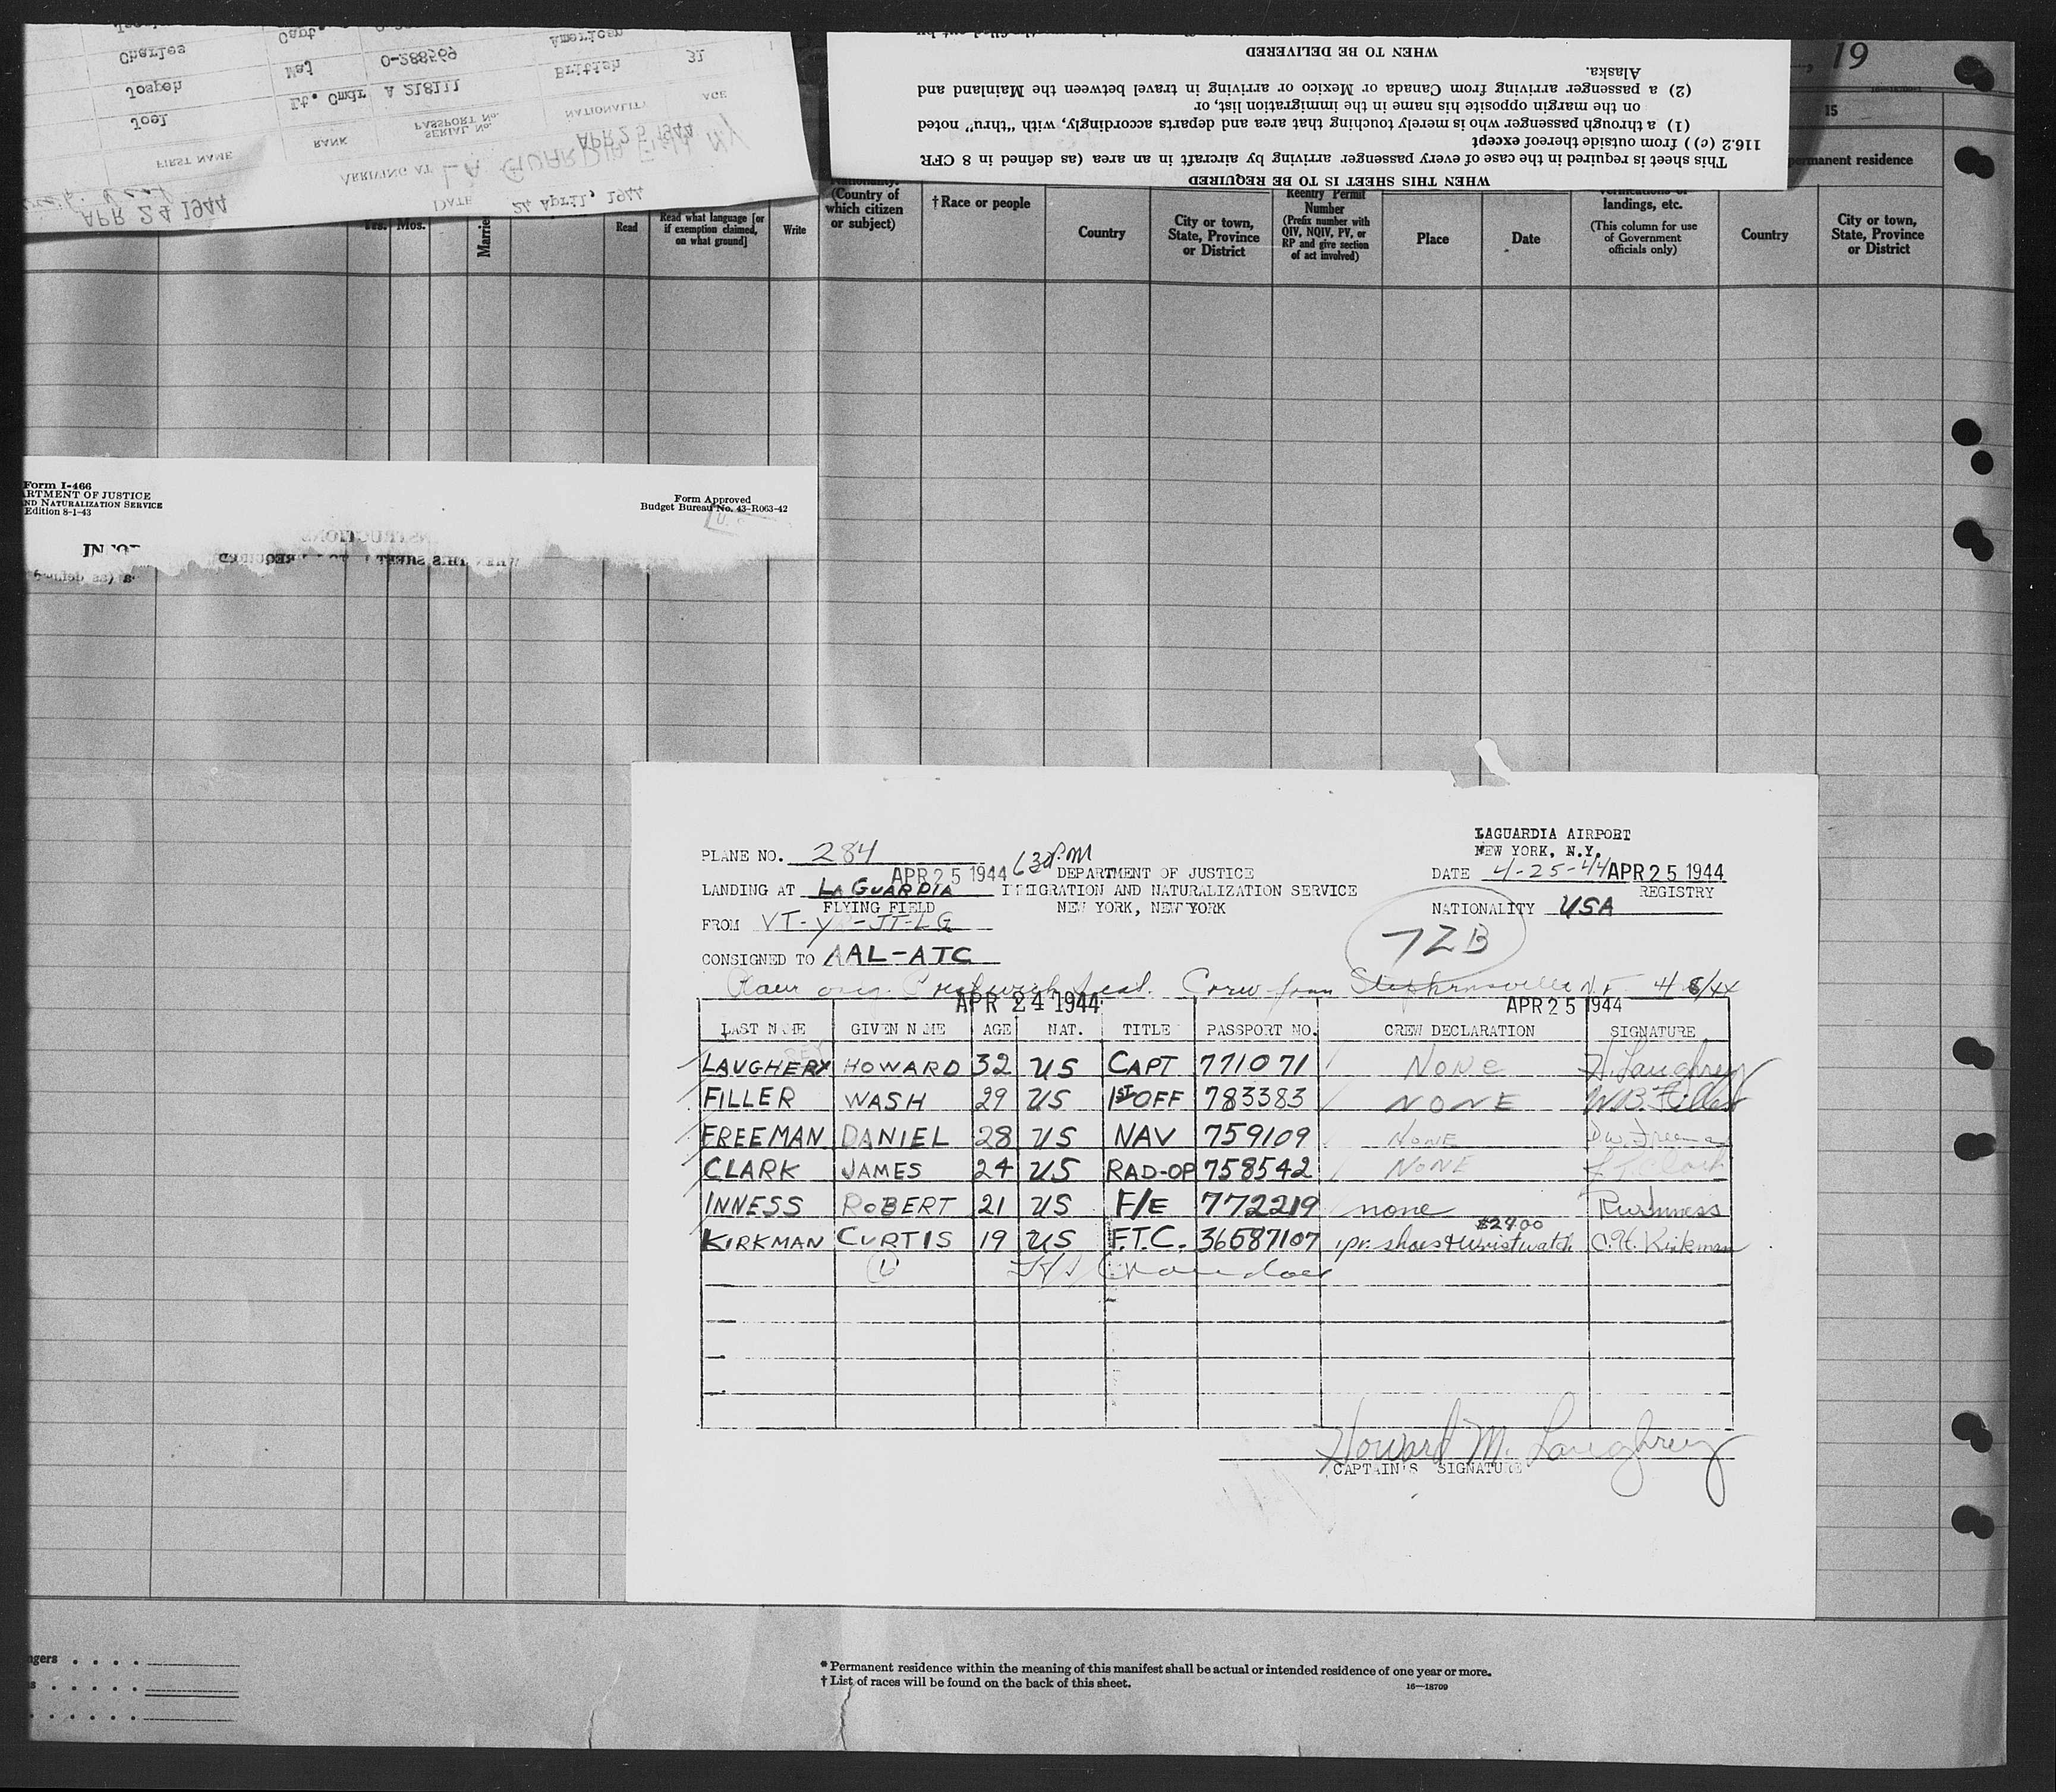 Charles Capt.
Jospeh Maj O-288569 American
Joel Lt. Cmdr A 218111 British 31
FIRST NAME RANK SERIAL No. PASSPORT No. NATIONALITY AGE
ARRIVING AT LA GUARDIA Field NY APR 25 1944
APR 24 1944 DATE 24 April, 1944
WHEN THIS SHEET IS TO BE REQUIRED
This sheet is required in the case of every passenger arriving by aircraft in an area (as defined in 8 CFR
116.2 (c)) from outside thereof except
(1) a through passenger who is merely touching that area and departs accordingly, with “thru” noted
on the margin opposite his name in the immigration list, or
(2) a passenger arriving from Canada or Mexico or arriving in travel between the Mainland and
Alaska.
WHEN TO BE DELIVERED
, 19
15
permanent residence
Yrs. Mos.
Read
Read what language [or
if exemption claimed,
on what ground]
Write
Nationality.
(Country of
which citizen
or subject)
† Race or people
Country
City or town,
State, Province
or District
Reentry Permit
Number
(Prefix number with
QIV, NQIV, PV, or
RP and give section
of act involved)
Place
Date
landings, etc.
(This column for use
of Government
officials only)
Country
City or town,
State, Province
or District
Form I-466
ARTMENT OF JUSTICE
AND NATURALIZATION SERVICE
Edition 8-1-43
Form Approved
Budget Bureau No. 43-R063-42
INSTRUCTIONS
WHEN THIS SHEET REQUIRED
LAGUARDIA AIRPORT
NEW YORK, N.Y.
PLANE NO. 284
APR 25 1944 630 P.M
DEPARTMENT OF JUSTICE
DATE 4-25-44 APR 25 1944
LANDING AT LA GUARDIA
IMMIGRATION AND NATURALIZATION SERVICE
REGISTRY
FLYING FIELD
NEW YORK, NEW YORK
NATIONALITY USA
FROM VT-Y -JT-LG
7ZB
CONSIGNED TO AAL-ATC
Crew from Stephensville N.F.
APR 24 1944 APR 25 1944
LAST NAME GIVEN NAME AGE NAT. TITLE PASSPORT NO. CREW DECLARATION SIGNATURE
LAUGHERY HOWARD 32 US CAPT 771071 NONE H. Laughrey
FILLER WASH 29 US 1ST OFF 783383 NONE W.B. Filler
FREEMAN DANIEL 28 US NAV 759109 NONE D.W. Freeman
CLARK JAMES 24 US RAD-OP 758542 NONE Clark
INNESS ROBERT 21 US F/E 772219 none R.W. Inness
KIRKMAN CURTIS 19 US F.T.C. 36587107 1 pr. shoes & wristwatch $29.00 C.H. Kirkman
Howard M. Laughrey
CAPTAIN'S SIGNATURE
ngers
* Permanent residence within the meaning of this manifest shall be actual or intended residence of one year or more.
† List of races will be found on the back of this sheet.
16—18709